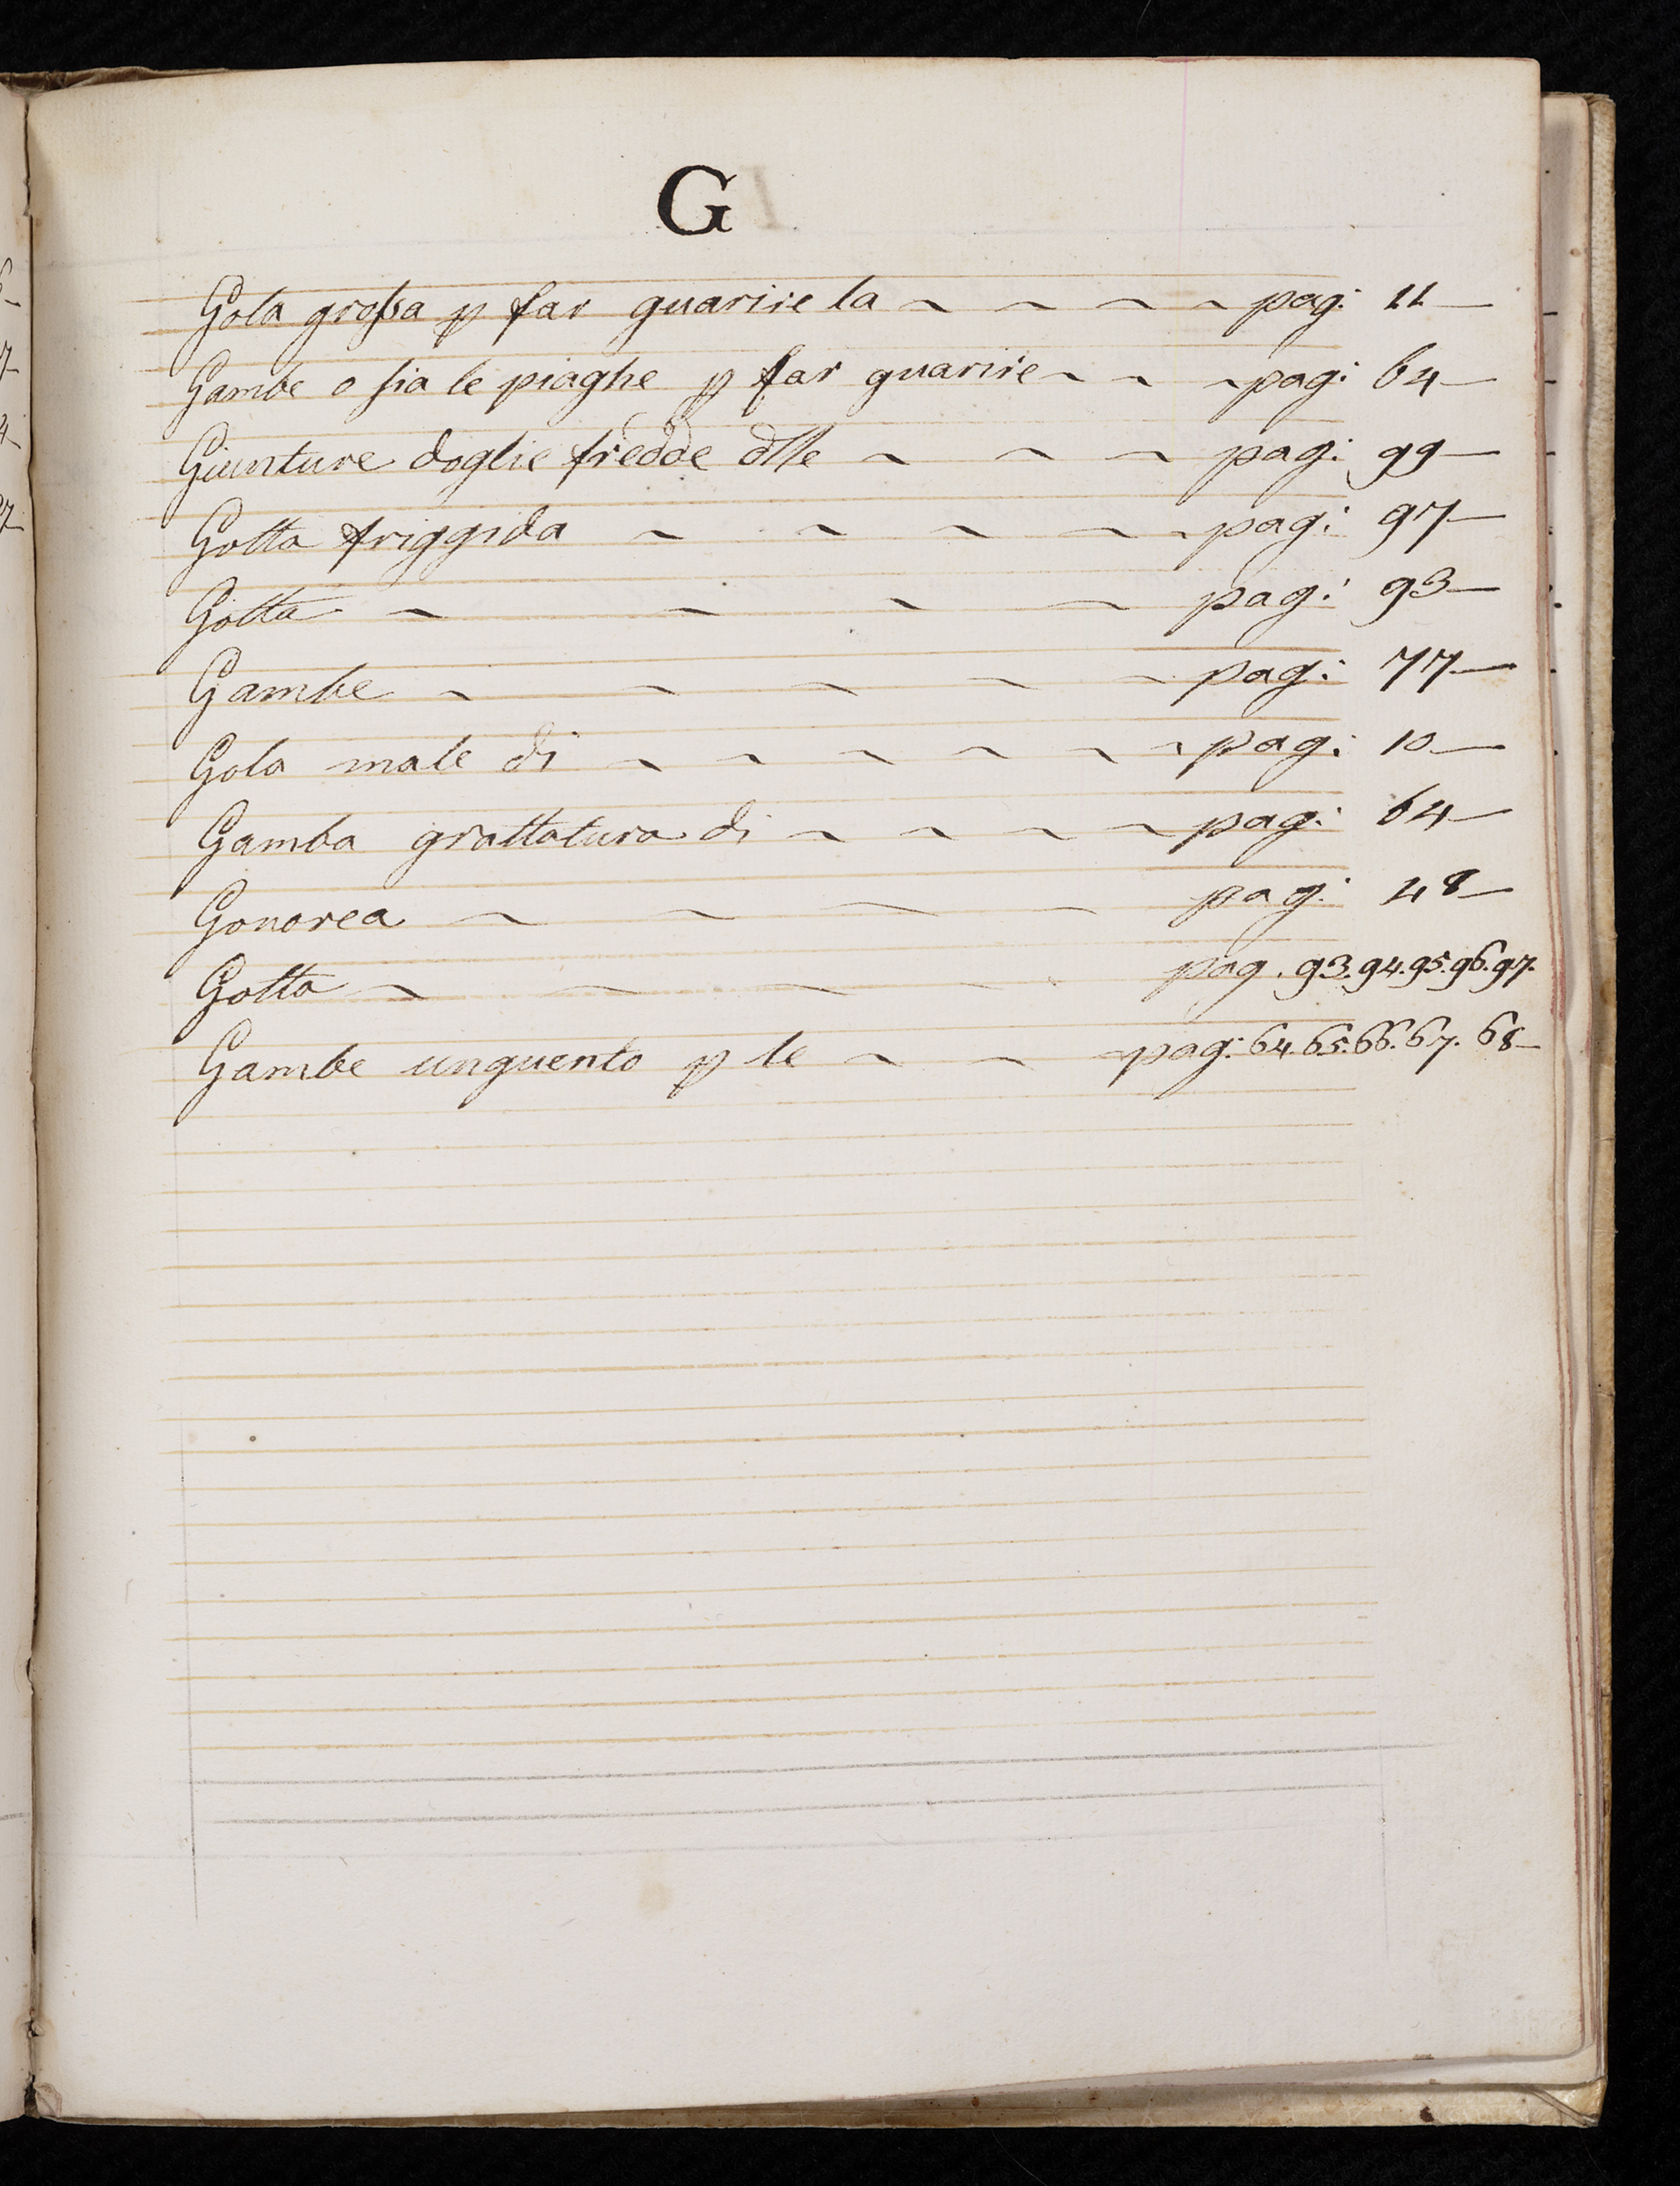 G
Gola grossa p far guarire la ~ ~ ~ ~ pag: 11 —
Gambe o sia le piaghe p far guarire ~ ~ ~ pag: 64 —
Giunture doglie fredde dlle ~ ~ ~ pag: 99 —
Gotta friggida ~ ~ ~ ~ ~ pag: 97 —
Gotta ~ ~ ~ ~ pag: 93 —
Gambe ~ ~ ~ ~ ~ pag: 77 —
Gola male di ~ ~ ~ ~ ~ ~ pag: 10 —
Gamba grattatura di ~ ~ ~ ~ pag: 64 —
Gonorea ~ ~ ~ ~ pag: 48 —
Gotta ~ ~ ~ ~ pag. 93. 94. 95. 96. 97.
Gambe unguento p le ~ ~ ~ pag: 64. 65. 66. 67. 68 —